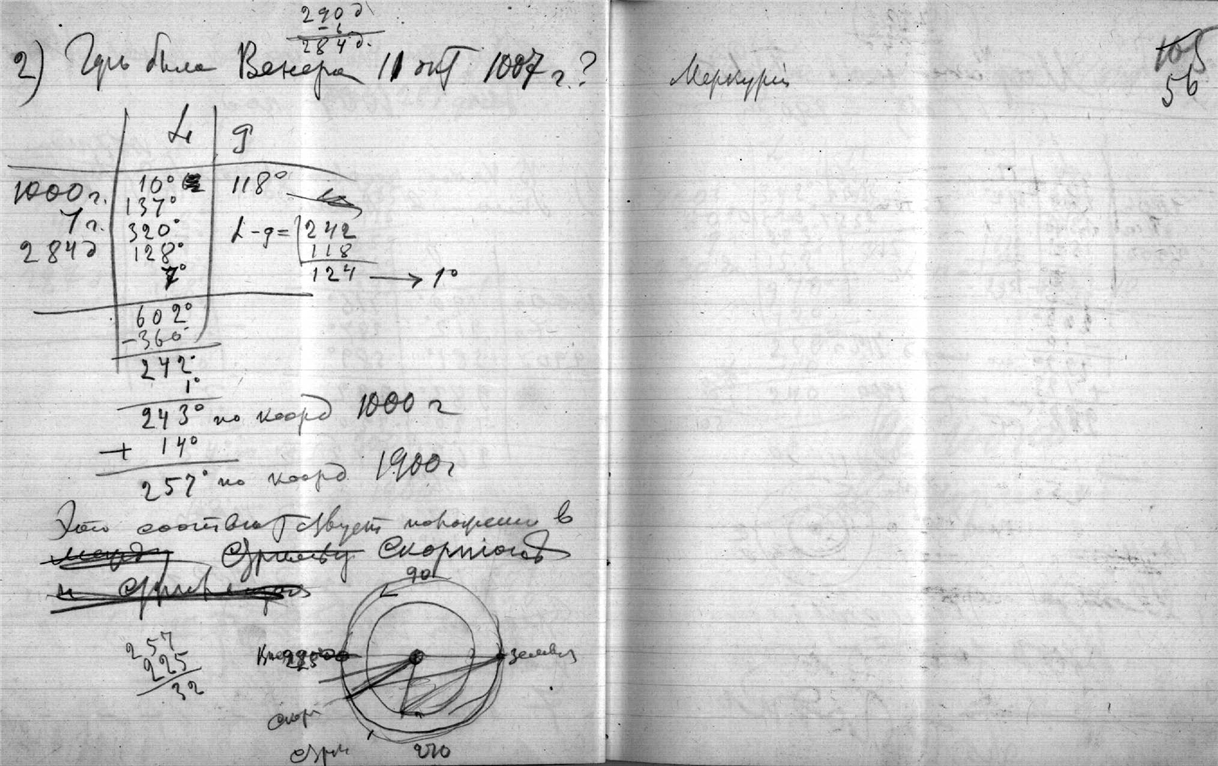 290 д
- 6
284 д.
2) Гдѣ была Венера 11 окт 1007 г.?
L g
1000 г. 10° 118°
7 г. 137°
284 д 320° L-g= 242
128° 118
7° 124 → 1°
602°
-360
242°
1°
243° по коорд 1000 г
+ 14°
257° по коорд 1900 г
Это соответствуетъ положенію в
между Стрельцу Скорпіонѣ
и
90
257
225
32
225
земля
скорп
стрл
270
Меркурій
105
56